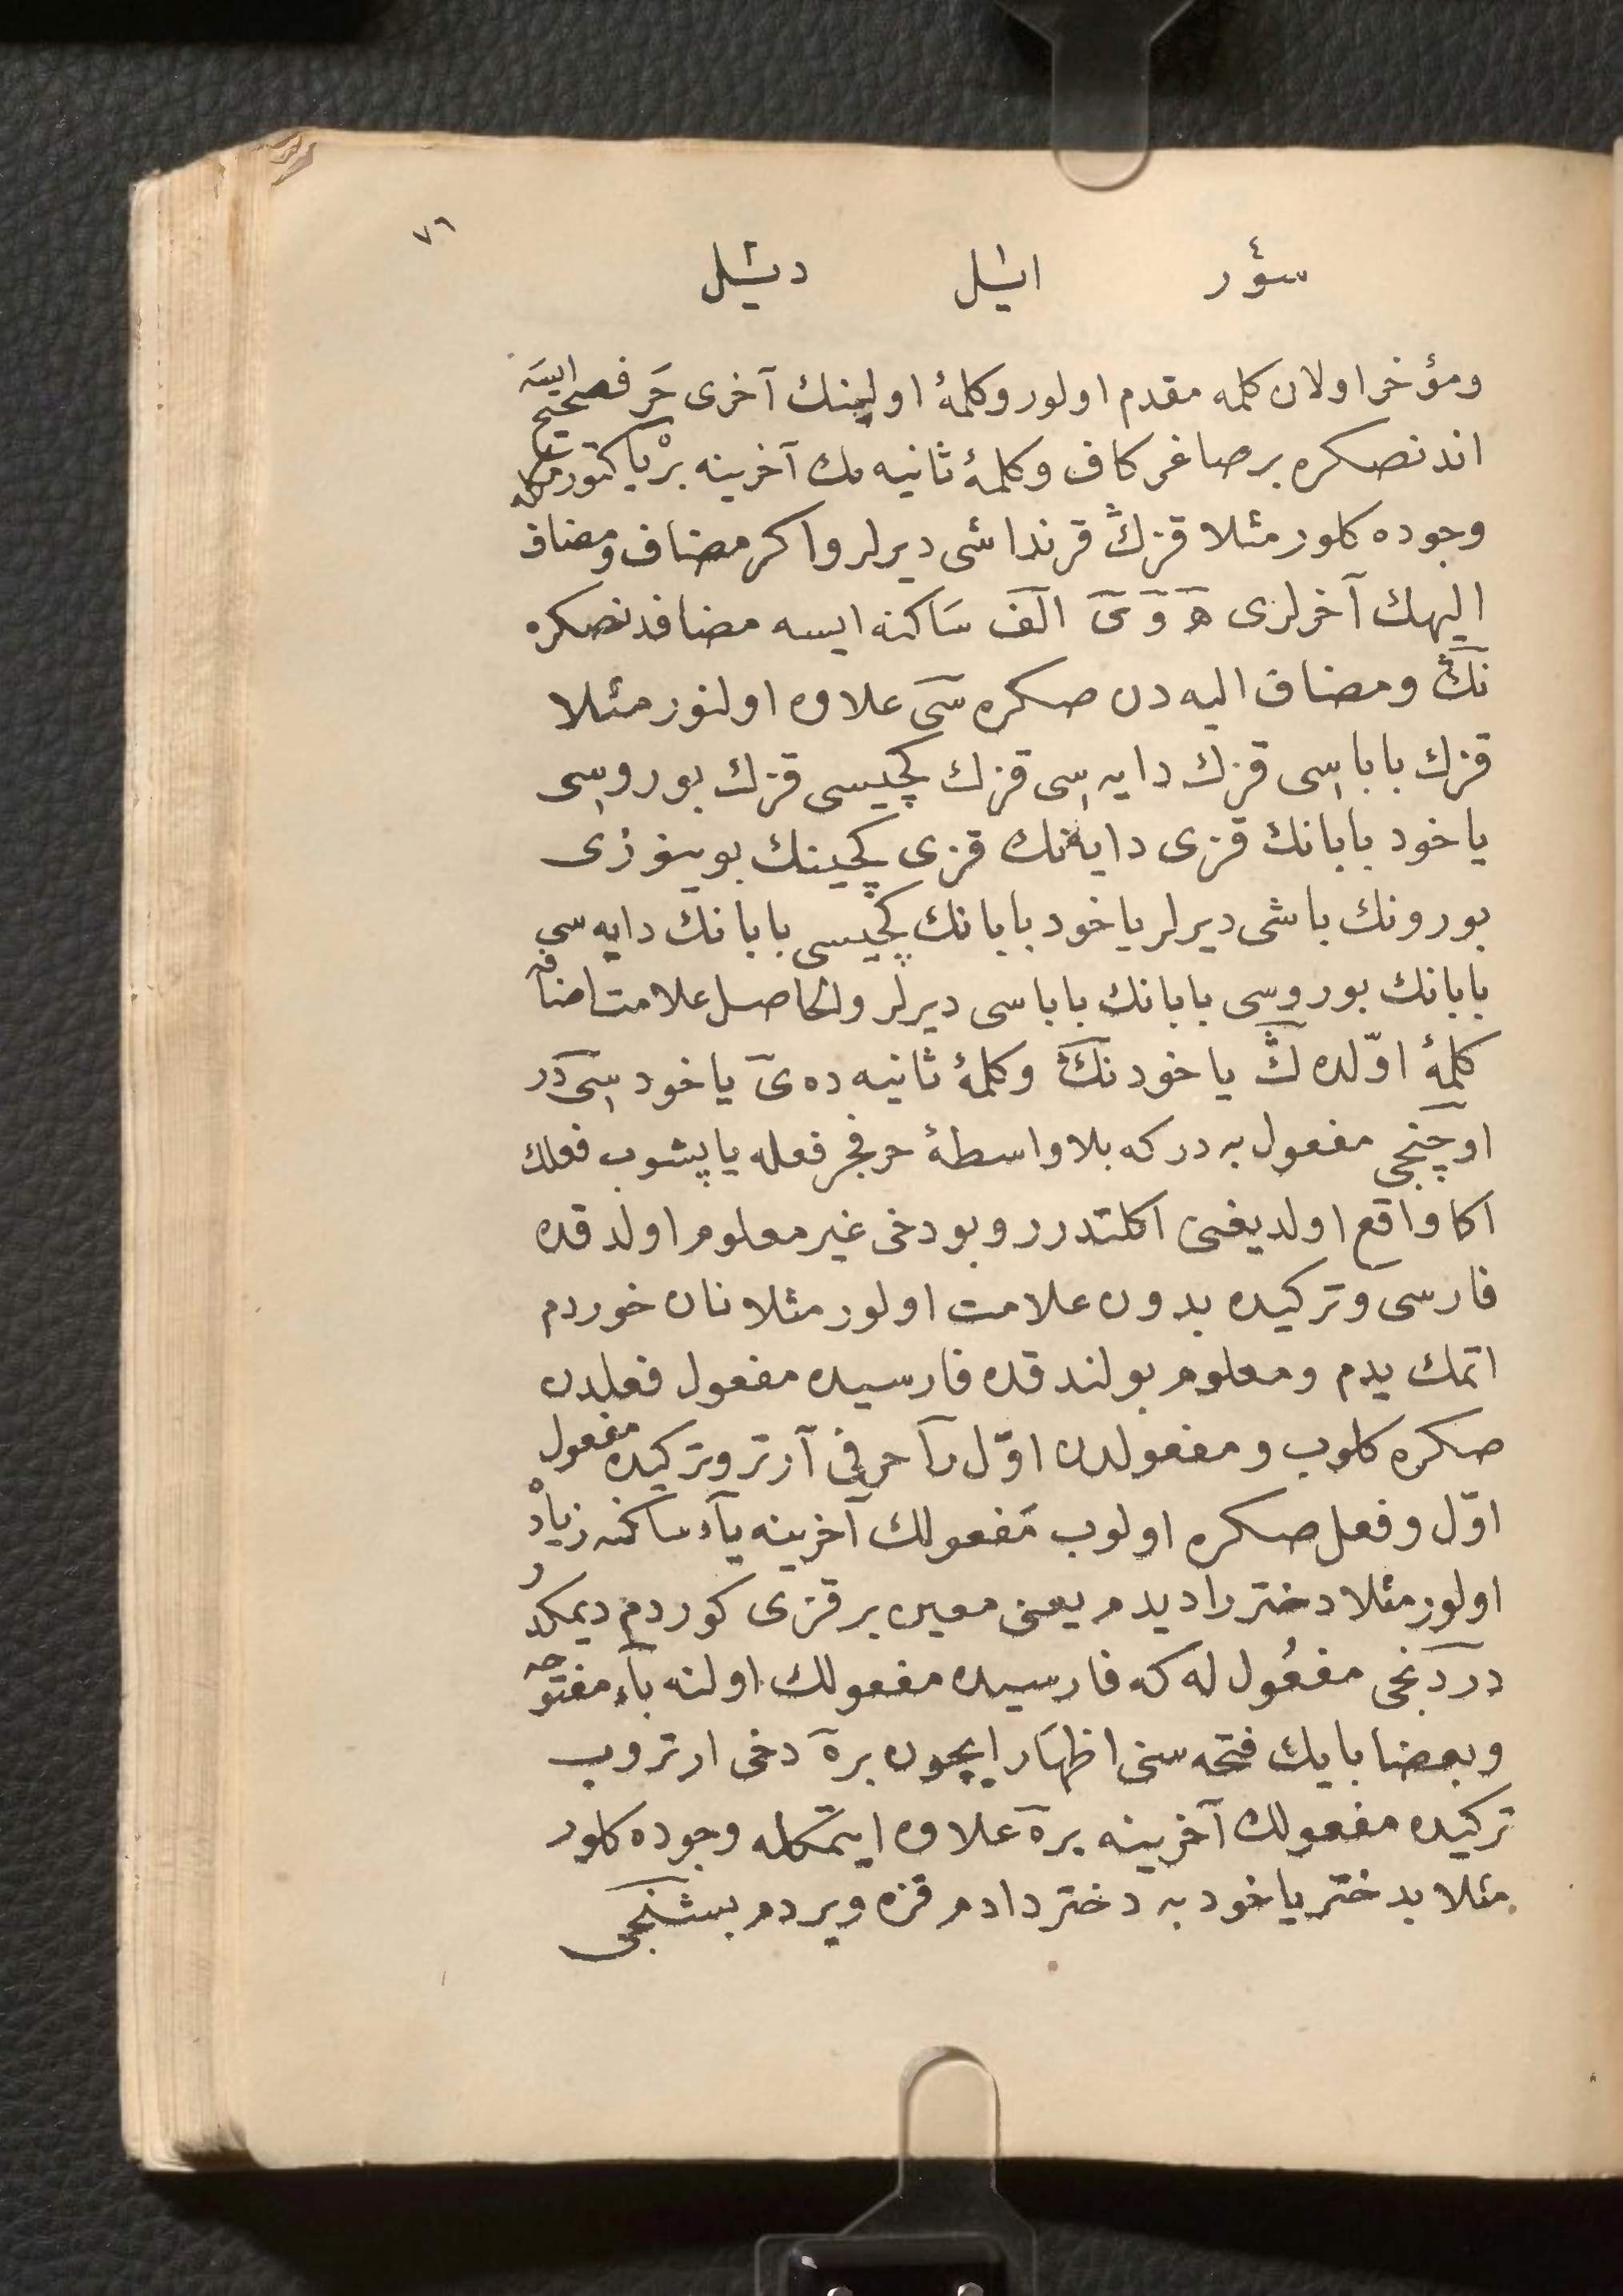 ٧٦
سؤر ايشل ديشل
ومؤخر اولان كلمه مقدم اولور وكلمۀ اولينك آخرى حرف صحيح ايسه
اندنصكره بر صاغر كاف وكلمۀ ثانيه نك آخرينه بر يا كتورمكله
وجوده كلور مثلا قزڭ قرنداشى ديرلر واكر مضاف ومضاف
اليهك آخرلرى ه و ى الف ساكنه ايسه مضافدنصكره
نڭ ومضاف اليه دن صكره سى علاوه اولنور مثلا
قزك باباسى قزك دايه سى قزك كچيسى قزك بوروسى
ياخود بابانك قزى دايه نك قزى كچينك بوينوزى
بورونك باشى ديرلر ياخود بابانك كچيسى بابانك دايه سى
بابانك بوروسى بابانك باباسى ديرلر والحاصل علامت اضافه
كلمۀ اوّلده ڭ ياخود نڭ وكلمۀ ثانيه ده ى ياخود سى در
اوچنجى مفعول به دركه بلا واسطۀ حرف جر فعله ياپشوب فعلك
اكا واقع اولديغنى اكلتدرر وبو دخى غير معلوم اولدقده
فارسى وتركيده بدون علامت اولور مثلا نان خوردم
اتمك يدم ومعلوم بولندقده فارسيده مفعول فعلدن
صكره كلوب ومفعولدن اوّل را حرفى آرتر وتركيده مفعول
اوّل وفعل صكره اولوب مفعولك آخرينه ياء ساكنه زياده
اولور مثلا دختر را ديدم يعنى معين بر قزى كوردم ديمكدر
دردنجى مفعول له كه فارسيده مفعولك اولنه باء مفتوحه
وبعضا بايك فتحه سنى اظهار ايچون بر ه دخى ارتروب
تركيده مفعولك آخرينه بر ه علاوه ايتمكله وجوده كلور
مثلا بدختر ياخود به دختر دادم قزه ويردم بشنجى